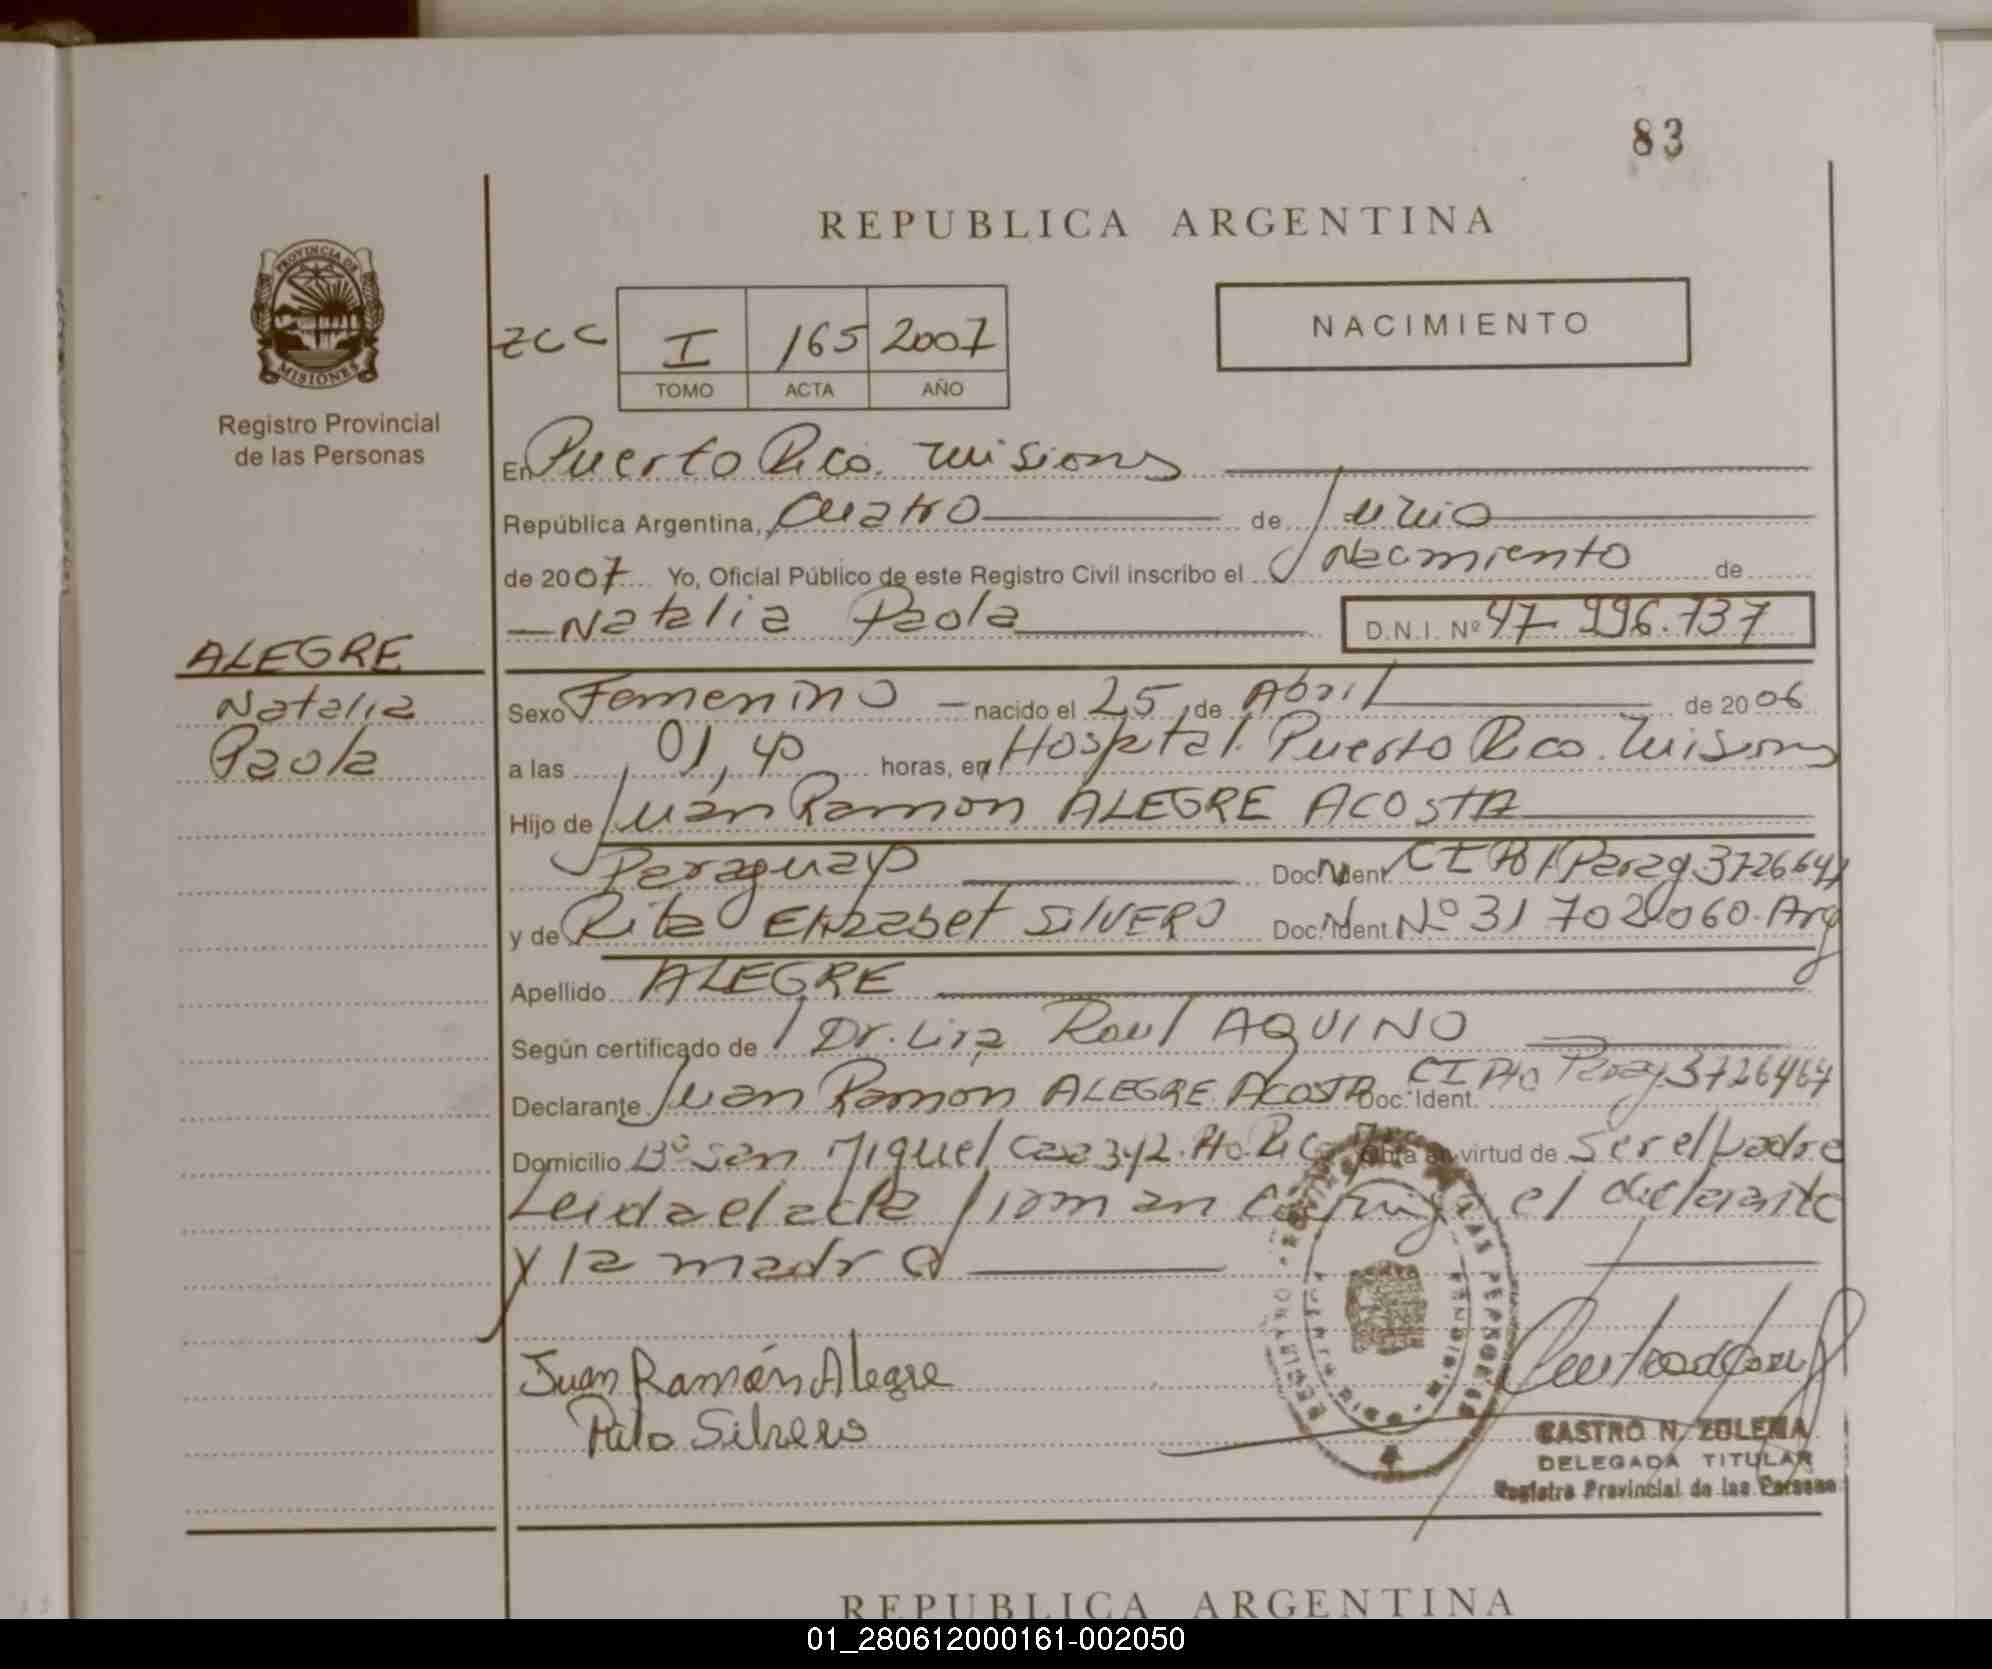 83
REPUBLICA ARGENTINA
PROVINCIA DE
MISIONES
Registro Provincial
de las Personas
NACIMIENTO
zcc I 165 2007
TOMO ACTA AÑO
En Puerto Rico. Misiones
República Argentina, Cuatro de Junio
de 2007 Yo, Oficial Público de este Registro Civil inscribo el Nacimiento de
Natalia Paola D.N.I. Nº 47 996.737
ALEGRE
Natalia
Paola
Sexo Femenino nacido el 25 de Abril de 2006
a las 01,40 horas, en Hospital Puerto Rico. Misiones
Hijo de Juan Ramon ALEGRE ACOSTA
Paraguayo Doc. Ident. CI Pol Parag
y de Rita Elizabet SILVERO Doc. Ident. Nº 31 702.060. Arg
Apellido ALEGRE
Según certificado de Dr. Raul AQUINO
Declarante Juan Ramon ALEGRE ACOSTA Doc. Ident. CI Parag 3726464
Domicilio Bº San Miguel Casa Pto Rico virtud de ser el padre
Leida el acta firman el declarante
y la madre
Juan Ramón Alegre
Silvero
CASTRO N. ZULEMA
DELEGADA TITULAR
Registro Provincial de las Personas
REPUBLICA ARGENTINA
01_280612000161-002050